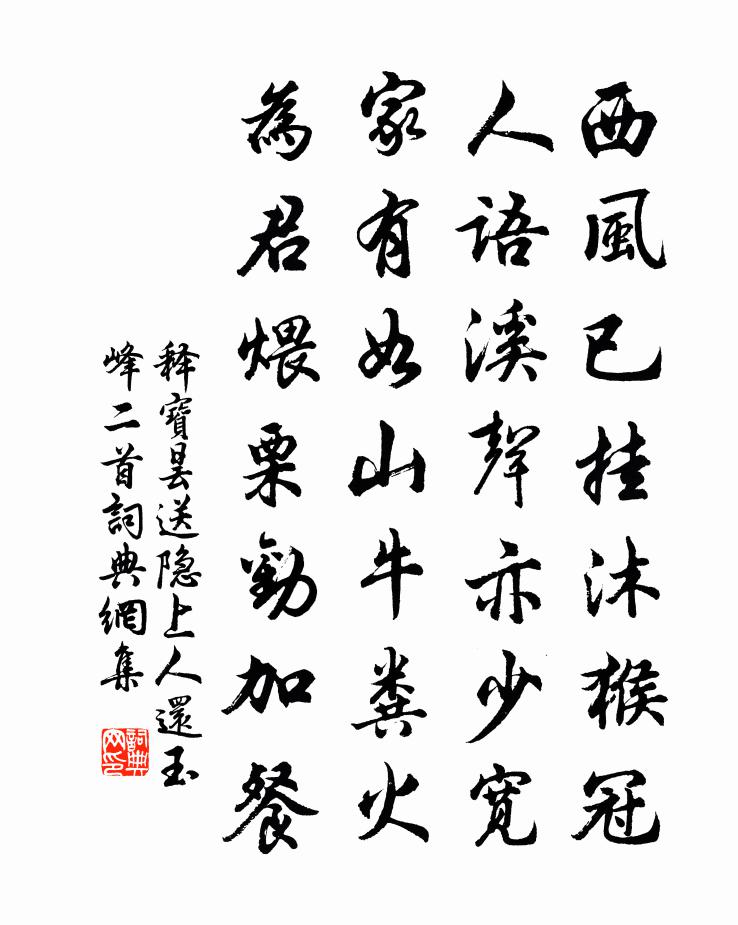 西風已挂沐猴冠
人語溪聲亦少寬
家有如山牛糞火
為君煨栗勸加餐
釋寶曇送隐上人還玉
峰二首詞典網集
詞典
网印